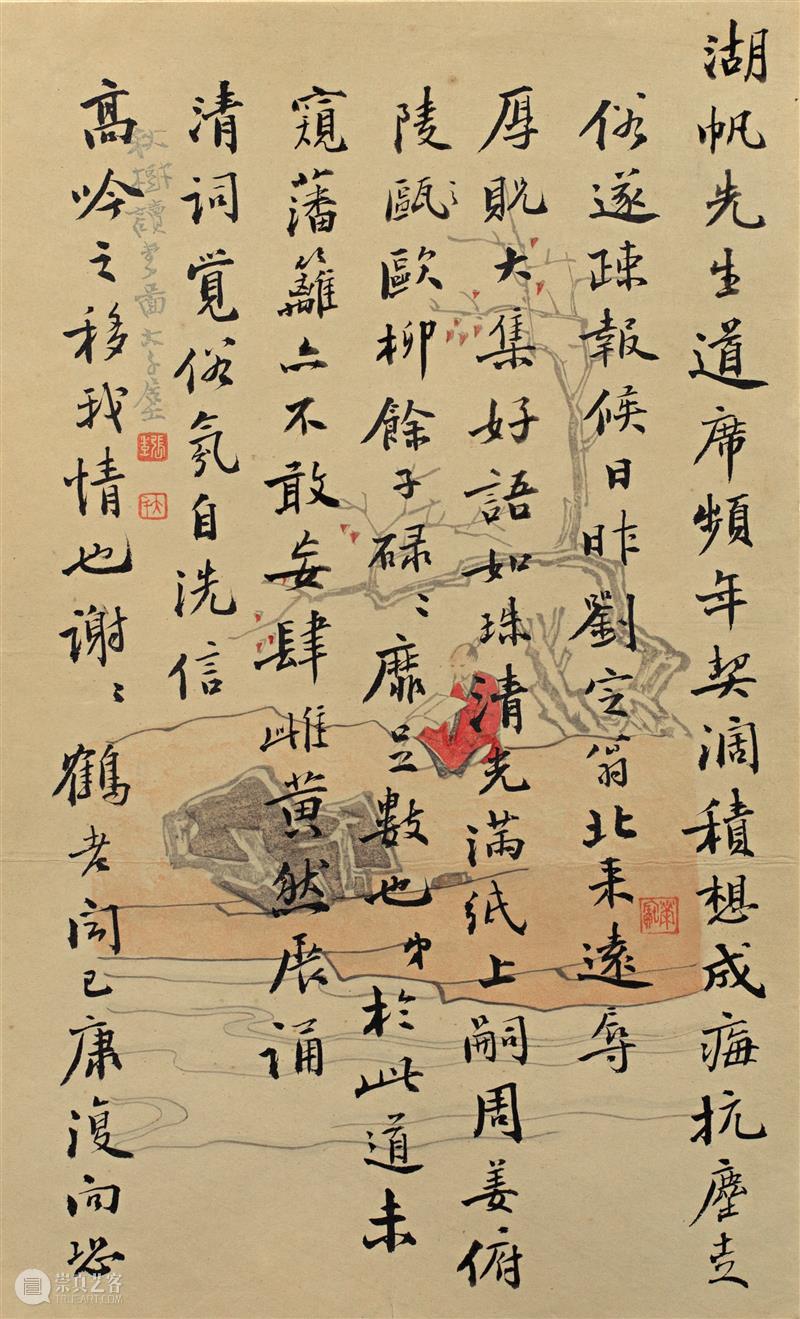 湖帆先生道席頻年契濶積想成痗抗塵走
俗遂疎報候日昨劉定翁北来遠辱
厚貺大集好語如珠清光滿紙上嗣周姜俯
陵甌〻歐柳餘子碌〻靡足數也弟於此道未
窺藩籬亦不敢妄肆雌黄然展誦
清詞覚俗氛自洗信
高吟之移我情也謝〻鶴老聞已康復向恐
秋樹讀書圖大千
大千
崇真艺客